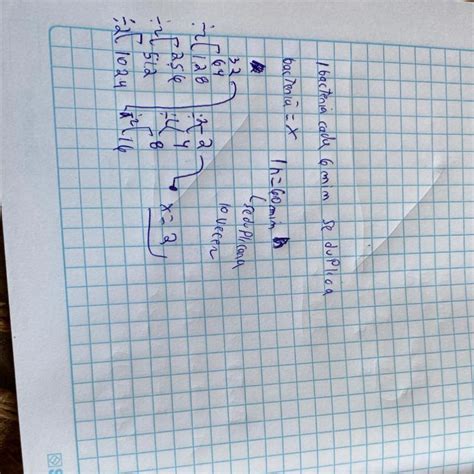 1 bacteria cada 6 min se duplica
bacteria = x
1h = 60min
se duplicaria
10 veces
32
÷2 64
128
÷2 256
÷2 512
÷2 1024
÷2 2
÷2 4
÷2 8
÷2 16
x = 2